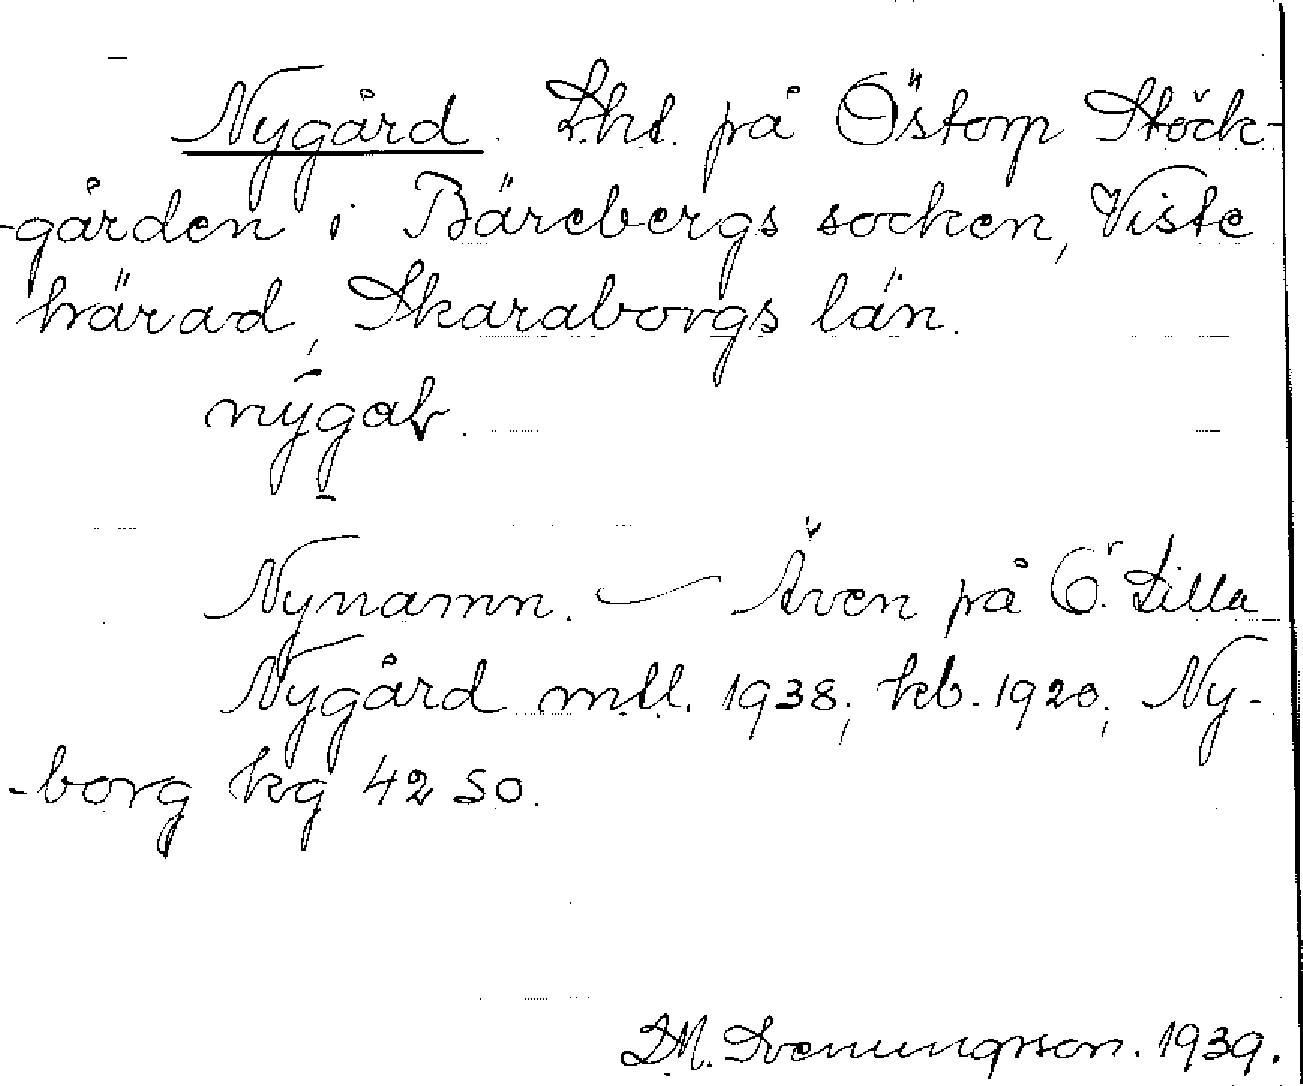 Nygård. Lht. på Östorp Stöck-
-gården i Bärebergs socken, Viste
härad, Skaraborgs län.
nȳgaḷ.
Nynamn. — Även på Ö. Lilla
Nygård m.ll. 1938; kb. 1920; Ny-
-borg kg 4250.
D.M. Svenungsson. 1939.